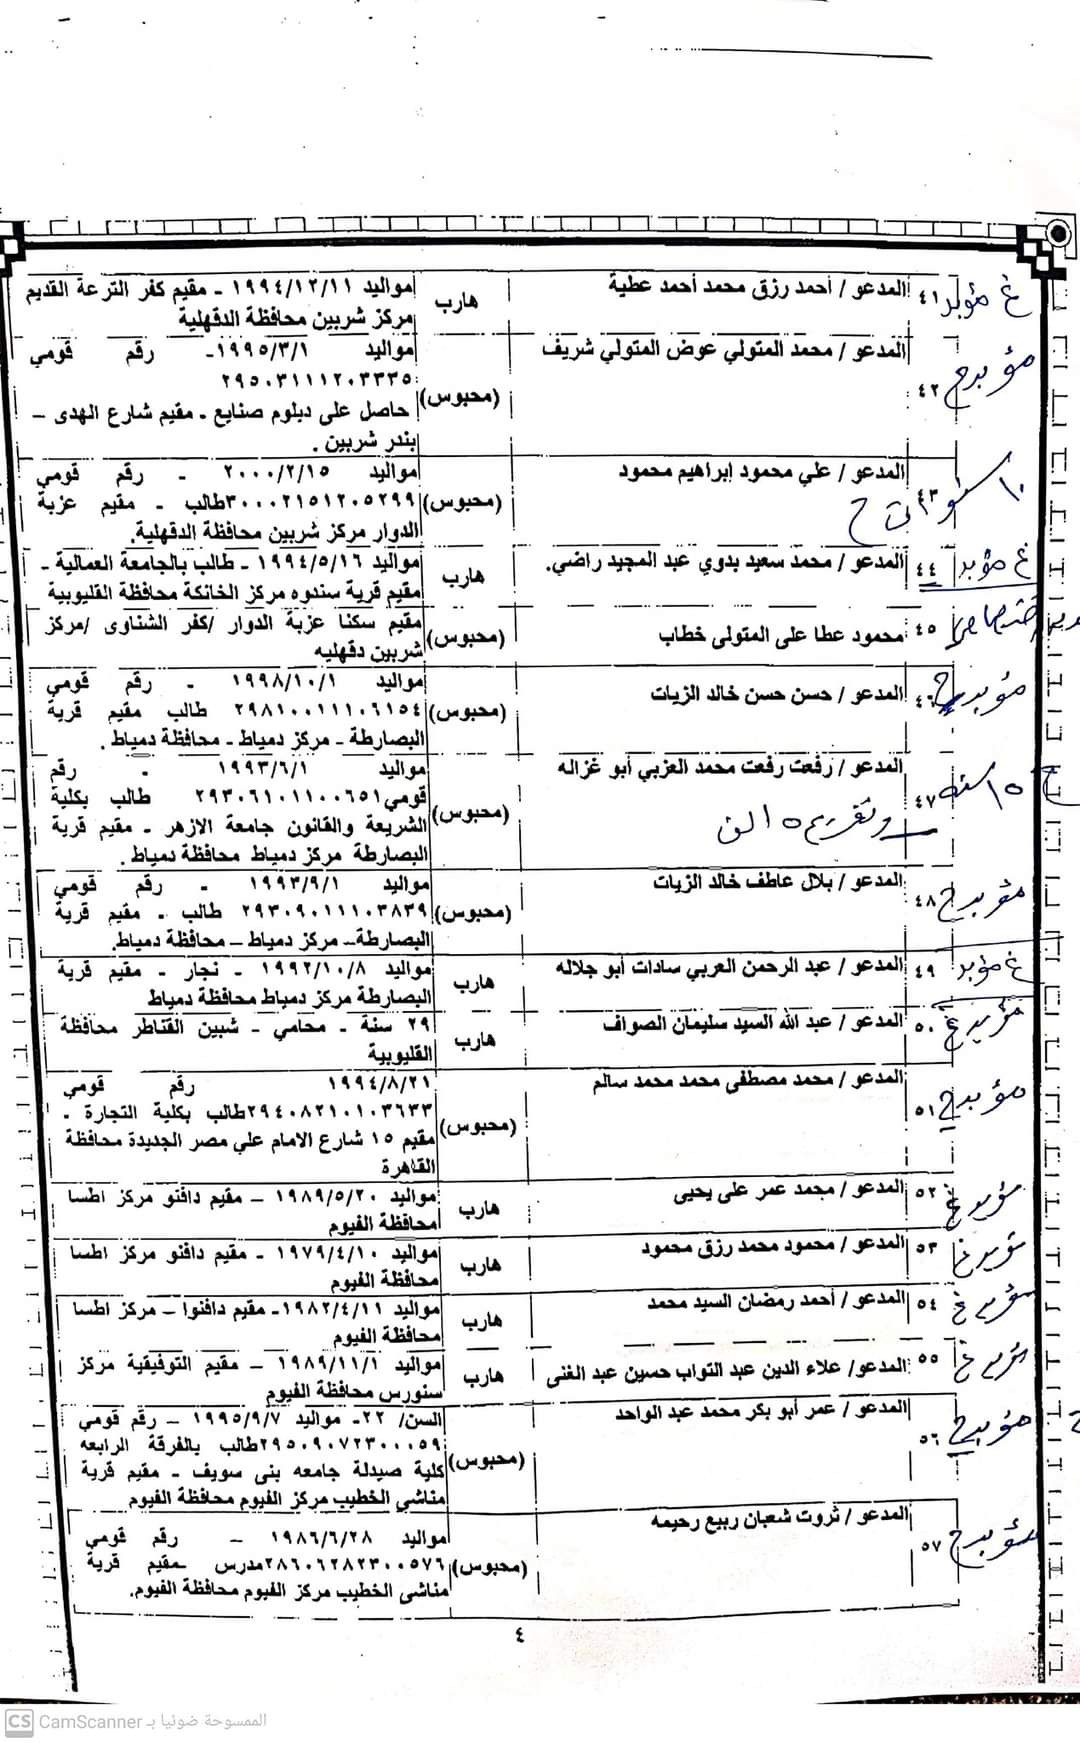 غ مؤبد
٤١ المدعو / أحمد رزق محمد أحمد عطية
هارب
مواليد ١٩٩٤/١٢/١١ - مقيم كفر الترعة القديم
مركز شربين محافظة الدقهلية
مؤبد ح
٤٢ المدعو / محمد المتولي عوض المتولي شريف
(محبوس)
مواليد ١٩٩٥/٣/١- رقم قومي
٢٩٥٠٣١١١٢٠٣٣٣٥
حاصل على دبلوم صنايع - مقيم شارع الهدى –
بندر شربين .
١٠ سنوات ح
٤٣ المدعو / علي محمود إبراهيم محمود
(محبوس)
مواليد ٢٠٠٠/٢/١٥ - رقم قومي
٣٠٠٠٢١٥١٢٠٥٢٩٩طالب - مقيم عزبة
الدوار مركز شربين محافظة الدقهلية.
غ مؤبد
٤٤ المدعو / محمد سعيد بدوي عبد المجيد راضي.
هارب
مواليد ١٩٩٤/٥/١٦ - طالب بالجامعة العمالية -
مقيم قرية سندوه مركز الخانكة محافظة القليوبية
٤٥ محمود عطا على المتولى خطاب
(محبوس)
مقيم سكنا عزبة الدوار /كفر الشناوى /مركز
شربين دقهليه
مؤبد ح
٤٦ المدعو / حسن حسن خالد الزيات
(محبوس)
مواليد ١٩٩٨/١٠/١ - رقم قومي
٢٩٨١٠٠١١١٠٦١٥٤ طالب مقيم قرية
البصارطة - مركز دمياط - محافظة دمياط .
ح ١٥ سنة
٤٧ المدعو / رفعت رفعت محمد العزبي أبو غزاله
وتغريم ٥ الف
(محبوس)
مواليد ١٩٩٣/٦/١ - رقم
قومي٢٩٣٠٦١٠١١٠٠٦٥١ طالب بكلية
الشريعة والقانون جامعة الازهر - مقيم قرية
البصارطة مركز دمياط محافظة دمياط .
مؤبد ح
٤٨ المدعو / بلال عاطف خالد الزيات
(محبوس)
مواليد ١٩٩٣/٩/١ - رقم قومي
٢٩٣٠٩٠١١١٠٣٨٣٩ طالب - مقيم قرية
البصارطة- مركز دمياط – محافظة دمياط.
غ مؤبد
٤٩ المدعو / عبد الرحمن العربي سادات أبو جلاله
هارب
مواليد ١٩٩٢/١٠/٨ - نجار - مقيم قرية
البصارطة مركز دمياط محافظة دمياط
مؤبد غ
٥٠ المدعو / عبد الله السيد سليمان الصواف
هارب
٢٩ سنة - محامي - شبين القناطر محافظة
القليوبية
مؤبد ح
٥١ المدعو / محمد مصطفى محمد محمد سالم
(محبوس)
١٩٩٤/٨/٢١ رقم قومي
٢٩٤٠٨٢١٠١٠٣٦٣٣طالب بكلية التجارة -
مقيم ١٥ شارع الامام علي مصر الجديدة محافظة
القاهرة
مؤبد غ
٥٢ المدعو / محمد عمر على يحيى
هارب
مواليد ١٩٨٩/٥/٢٠ – مقيم دافنو مركز اطسا
محافظة الفيوم
مؤبد غ
٥٣ المدعو / محمود محمد رزق محمود
هارب
مواليد ١٩٧٩/٤/١٠ - مقيم دافنو مركز اطسا
محافظة الفيوم
مؤبد غ
٥٤ المدعو / أحمد رمضان السيد محمد
هارب
مواليد ١٩٨٢/٤/١١- مقيم دافنوا – مركز اطسا
محافظة الفيوم
مؤبد غ
٥٥ المدعو/ علاء الدين عبد التواب حسين عبد الغنى
هارب
مواليد ١٩٨٩/١١/١ – مقيم التوفيقية مركز
سنورس محافظة الفيوم
مؤبد ح
٥٦ المدعو / عمر أبو بكر محمد عبد الواحد
(محبوس)
السن/ ٢٢- مواليد ١٩٩٥/٩/٧ – رقم قومي
٢٩٥٠٩٠٧٢٣٠٠٠٥٩طالب بالفرقة الرابعه
كلية صيدلة جامعه بنى سويف - مقيم قرية
مناشى الخطيب مركز الفيوم محافظة الفيوم
مؤبد ح
٥٧ المدعو / ثروت شعبان ربيع رحيمه
(محبوس)
مواليد ١٩٨٦/٦/٢٨ – رقم قومي
٢٨٦٠٦٢٨٢٣٠٠٥٧٦مدرس -مقيم قرية
مناشى الخطيب مركز الفيوم محافظة الفيوم.
٤
CS CamScanner الممسوحة ضوئيا بـ